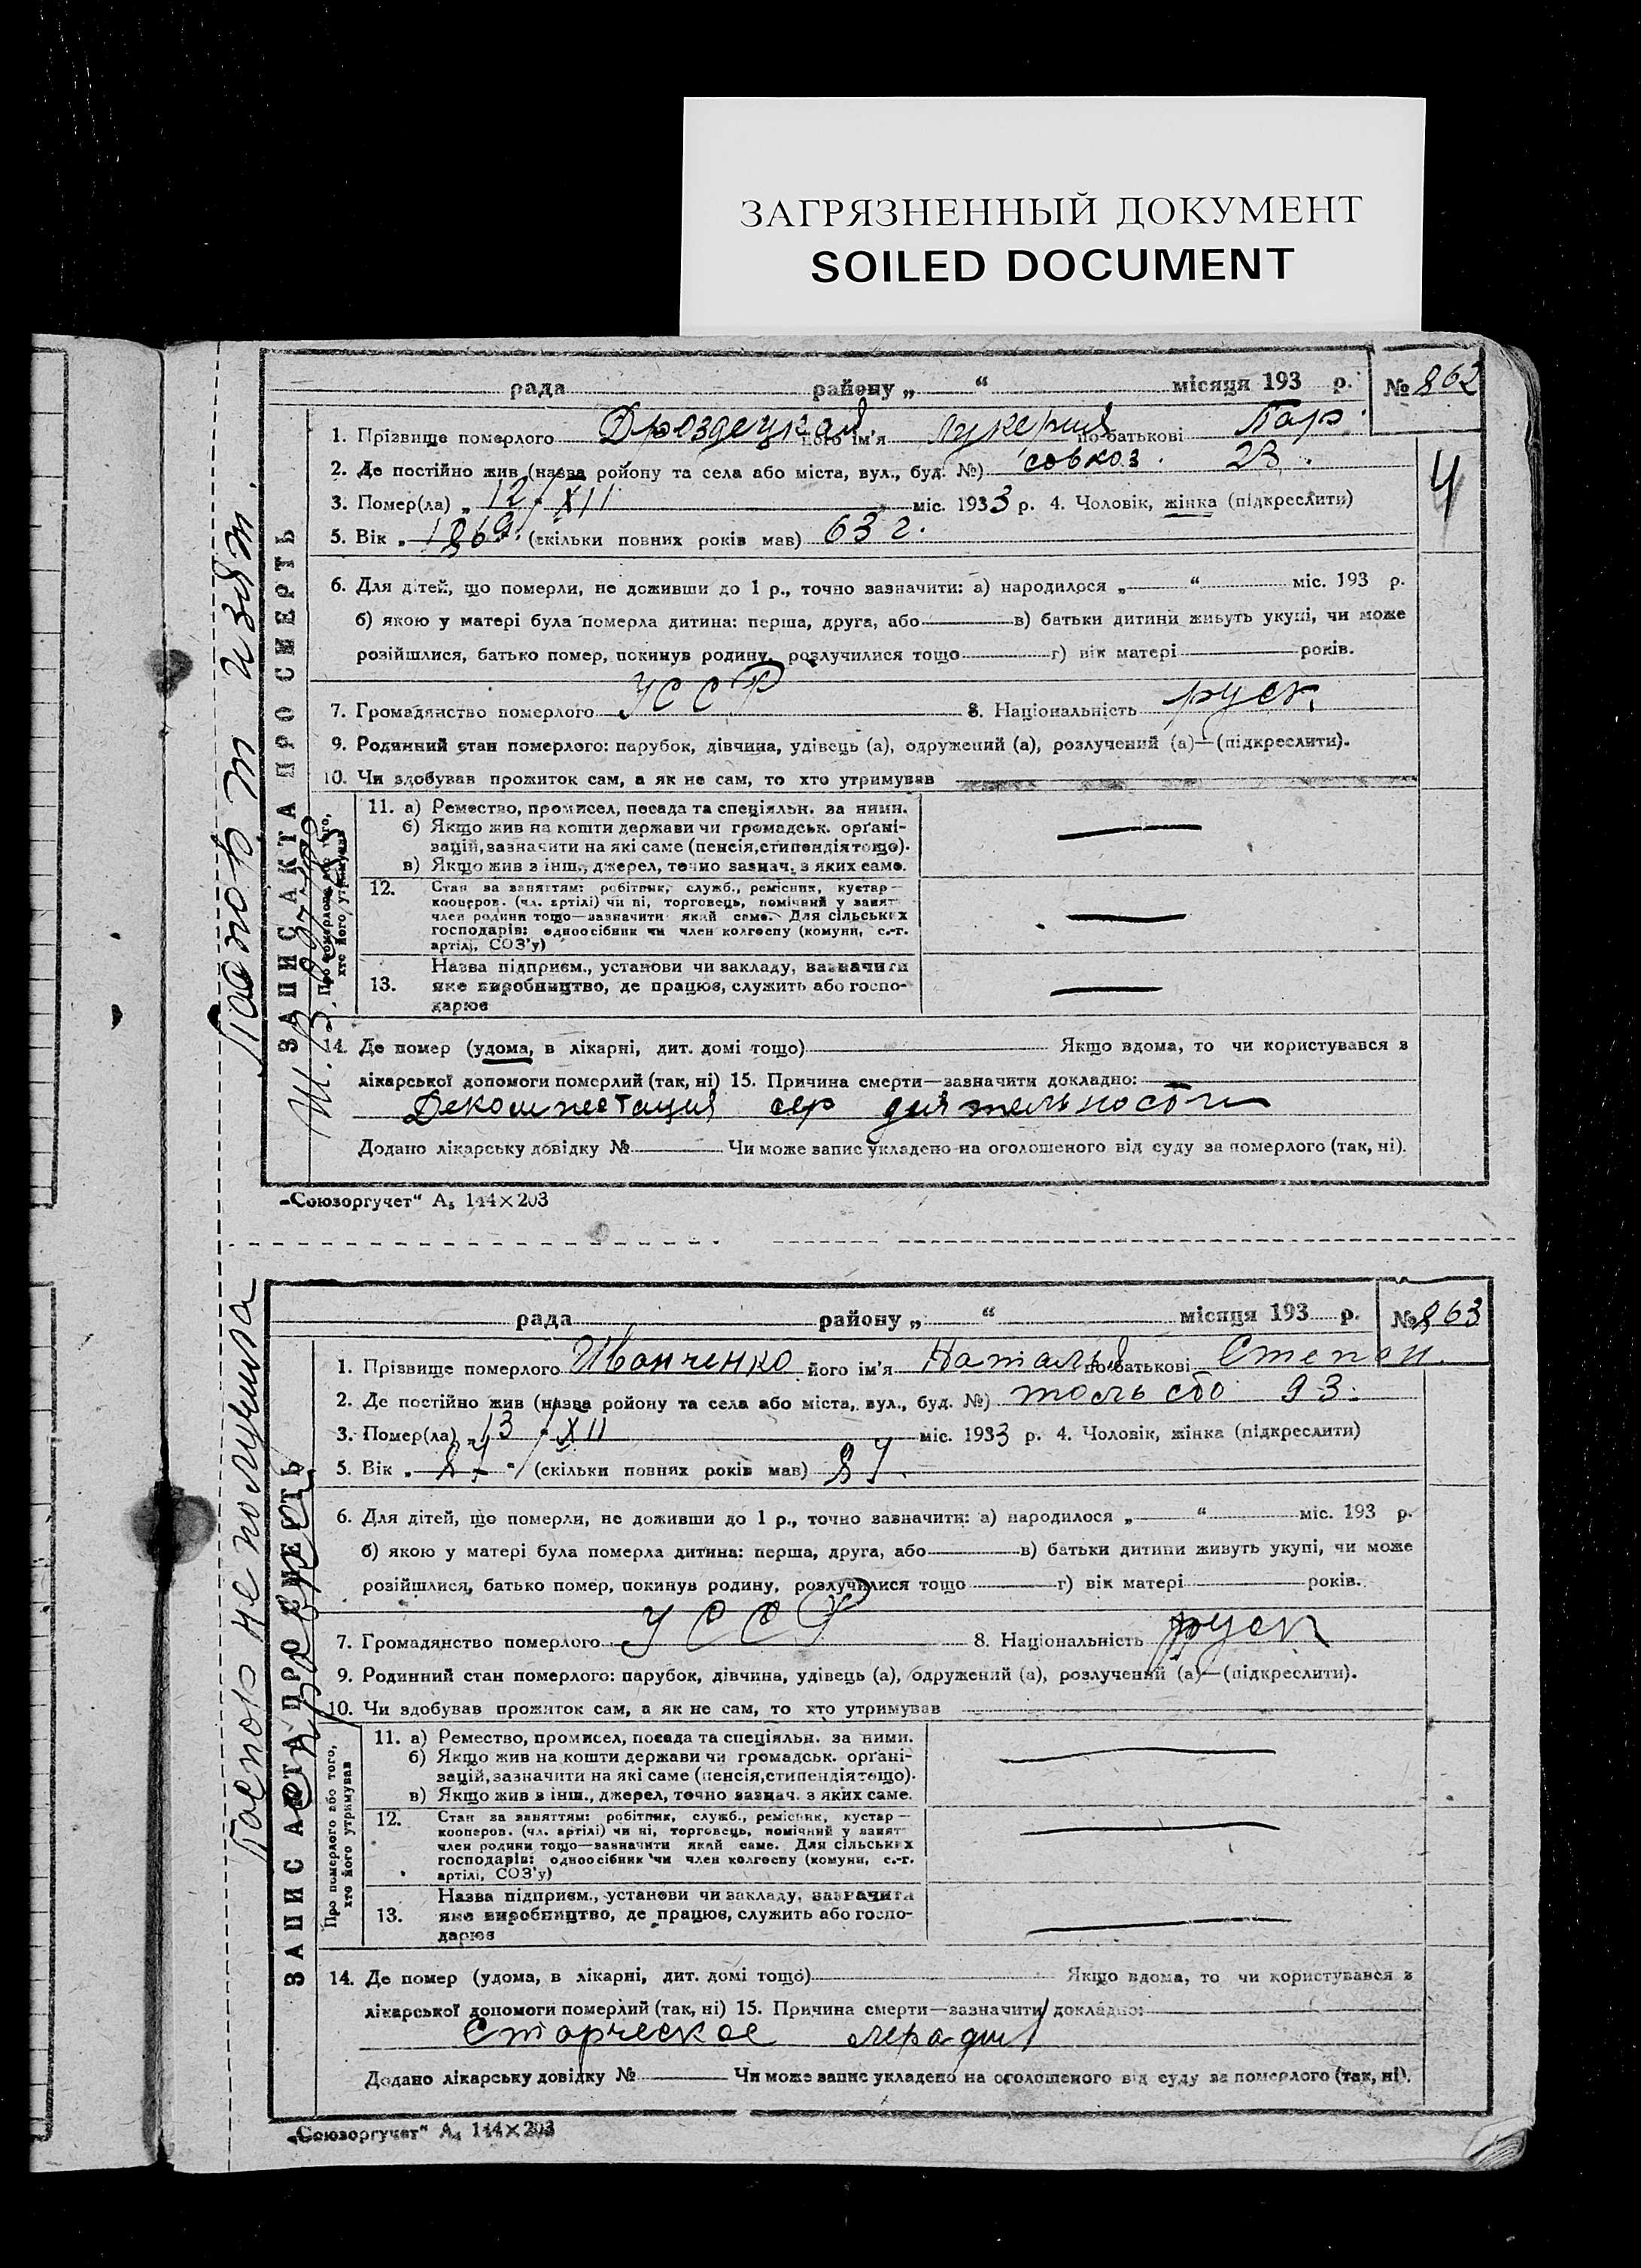 ЗАГРЯЗНЕННЫЙ ДОКУМЕНТ
SOILED DOCUMENT
рада району „ “ місяця 193 р. № 862
1. Прізвище померлого Дроздецкая його ім'я Лукерия по-батькові
2. Де постійно жив (назва району та села або міста, вул., буд. №) совхоз 23.
3. Помер(ла) „12/XII міс. 1933 р. 4. Чоловік, жінка (підкреслити)
4
5. Вік „1869. (скільки повних років мав) 63 г.
6. Для дітей, що померли, не доживши до 1 р., точно зазначити: а) народилося „ “ міс. 193 р.
б) якою у матері була померла дитина: перша, друга, або в) батьки дитини живуть укупі, чи може
розійшлися, батько помер, покинув родину, розлучилися тощо г) вік матері років.
7. Громадянство померлого УССР 8. Національність руск.
9. Родинний стан померлого: парубок, дівчина, удівець (а), одружений (а), розлучений (а)—(підкреслити).
10. Чи здобував прожиток сам, а як не сам, то хто утримував
11. а) Ремество, промисел, посада та спеціяльн. за ними.
б) Якщо жив на кошти держави чи громадськ. орґані-
зацій, зазначити на які саме (пенсія, стипендія тощо).
в) Якщо жив з інш., джерел, точно зазнач. з яких саме.
12. Стан за заняттям: робітник, служб., ремісник, кустар—
кооперов. (чл. артілі) чи ні, торговець, помічний у занят
член родини тощо—зазначити який саме. Для сільських
господарів: одноосібник чи член колгоспу (комуни, с.-г.
артілі, СОЗ'у)
Назва підприєм., установи чи закладу, зазначити
13. яке виробництво, де працює, служить або госпо-
дарює
14. Де помер (удома, в лікарні, дит. домі тощо) Якщо вдома, то чи користувався з
лікарської допомоги померлий (так, ні) 15. Причина смерти—зазначити докладно:
Декомпесация сер деятельности
Додано лікарську довідку № Чи може запис укладено на оголошеного від суду за померлого (так, ні).
ЗАПИС АКТА ПРО СМЕРТЬ
Про померлого або того,
хто його утримував
Паспорт изят.
„Союзоргучет“ А₅ 144×203
рада району „ “ місяця 193 р. № 863
1. Прізвище померлого Иванченко його ім'я Наталья по-батькові Степан.
2. Де постійно жив (назва району та села або міста, вул., буд. №) 93.
3. Помер(ла) „13/XII міс. 1933 р. 4. Чоловік, жінка (підкреслити)
5. Вік „ “ (скільки повних років мав) 87.
6. Для дітей, що померли, не доживши до 1 р., точно зазначити: а) народилося „ “ міс. 193 р.
б) якою у матері була померла дитина: перша, друга, або в) батьки дитини живуть укупі, чи може
розійшлися, батько помер, покинув родину, розлучилися тощо г) вік матері років.
7. Громадянство померлого УССР 8. Національність руск
9. Родинний стан померлого: парубок, дівчина, удівець (а), одружений (а), розлучений (а)—(підкреслити).
10. Чи здобував прожиток сам, а як не сам, то хто утримував
11. а) Ремество, промисел, посада та спеціяльн. за ними.
б) Якщо жив на кошти держави чи громадськ. орґані-
зацій, зазначити на які саме (пенсія, стипендія тощо).
в) Якщо жив з інш., джерел, точно зазнач. з яких саме.
12. Стан за заняттям: робітник, служб., ремісник, кустар—
кооперов. (чл. артілі) чи ні, торговець, помічний у занят
член родини тощо—зазначити який саме. Для сільських
господарів: одноосібник чи член колгоспу (комуни, с.-г.
артілі, СОЗ'у)
Назва підприєм., установи чи закладу, зазначити
13. яке виробництво, де працює, служить або госпо-
дарює
14. Де помер (удома, в лікарні, дит. домі тощо) Якщо вдома, то чи користувався з
лікарської допомоги померлий (так, ні) 15. Причина смерти—зазначити докладно:
Старческое
Додано лікарську довідку № Чи може запис укладено на оголошеного від суду за померлого (так, ні).
ЗАПИС АКТА ПРО СМЕРТЬ
Про померлого або того,
хто його утримував
Паспорт не получила
„Союзоргучет“ А₅ 144×203